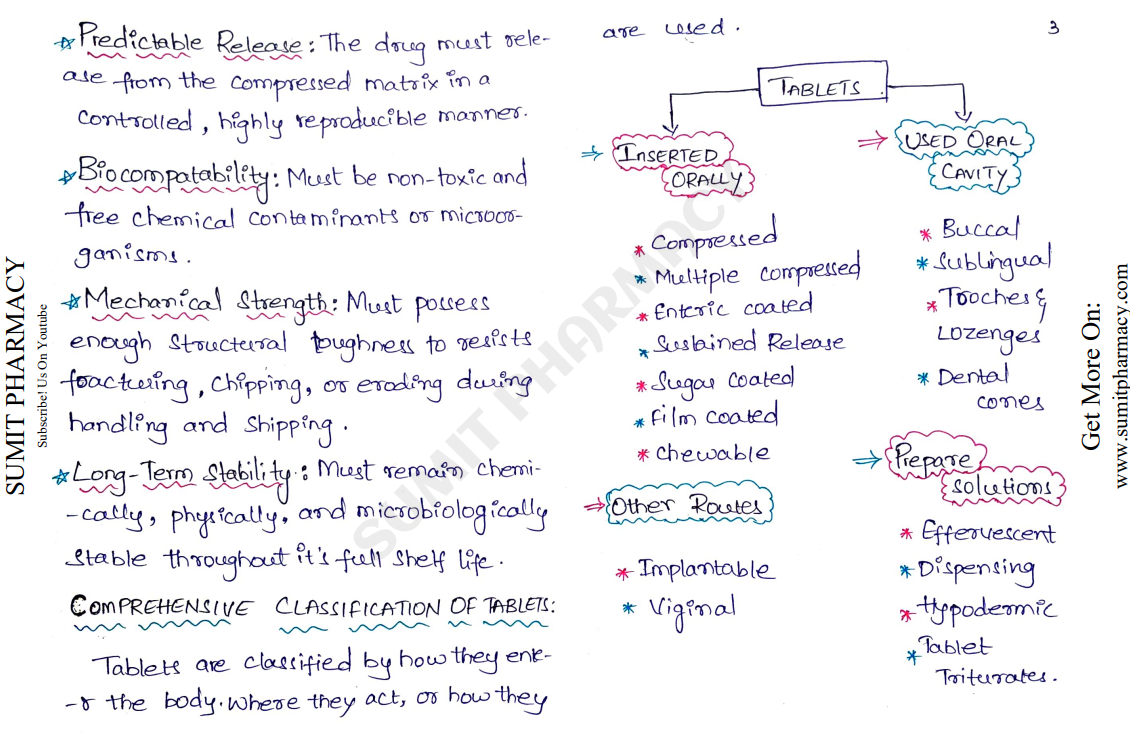 ☆Predictable Release: The drug must rele-
ase from the compressed matrix in a
controlled, highly reproducible manner.
☆Biocompatability: Must be non-toxic and
free chemical contaminants or microor-
ganisms.
☆Mechanical Strength: Must possess
enough structural toughness to resists
fracturing, chipping, or eroding during
handling and shipping.
☆Long-Term Stability: Must remain chemi-
-cally, physically, and microbiologically
stable throughout it's full shelf life.
COMPREHENSIVE CLASSIFICATION OF TABLETS:
Tablets are classified by how they ent-
-r the body. where they act, or how they
are used.
3
TABLETS
⇒ INSERTED
ORALLY
* Compressed
* Multiple compressed
* Enteric coated
* Sustained Release
* Sugar coated
* Film coated
* chewable
⇒ Other Routes
* Implantable
* Viginal
⇒ USED ORAL
CAVITY
* Buccal
* Sublingual
* Troches &
Lozenges
* Dental
cones
⇒ Prepare
solutions
* Effervescent
* Dispensing
* Hypodermic
* Tablet
Triturates.
SUMIT PHARMACY
Subscribe! Us On Youtube
Get More On:
www.sumitpharmacy.com
SUMIT PHARMACY